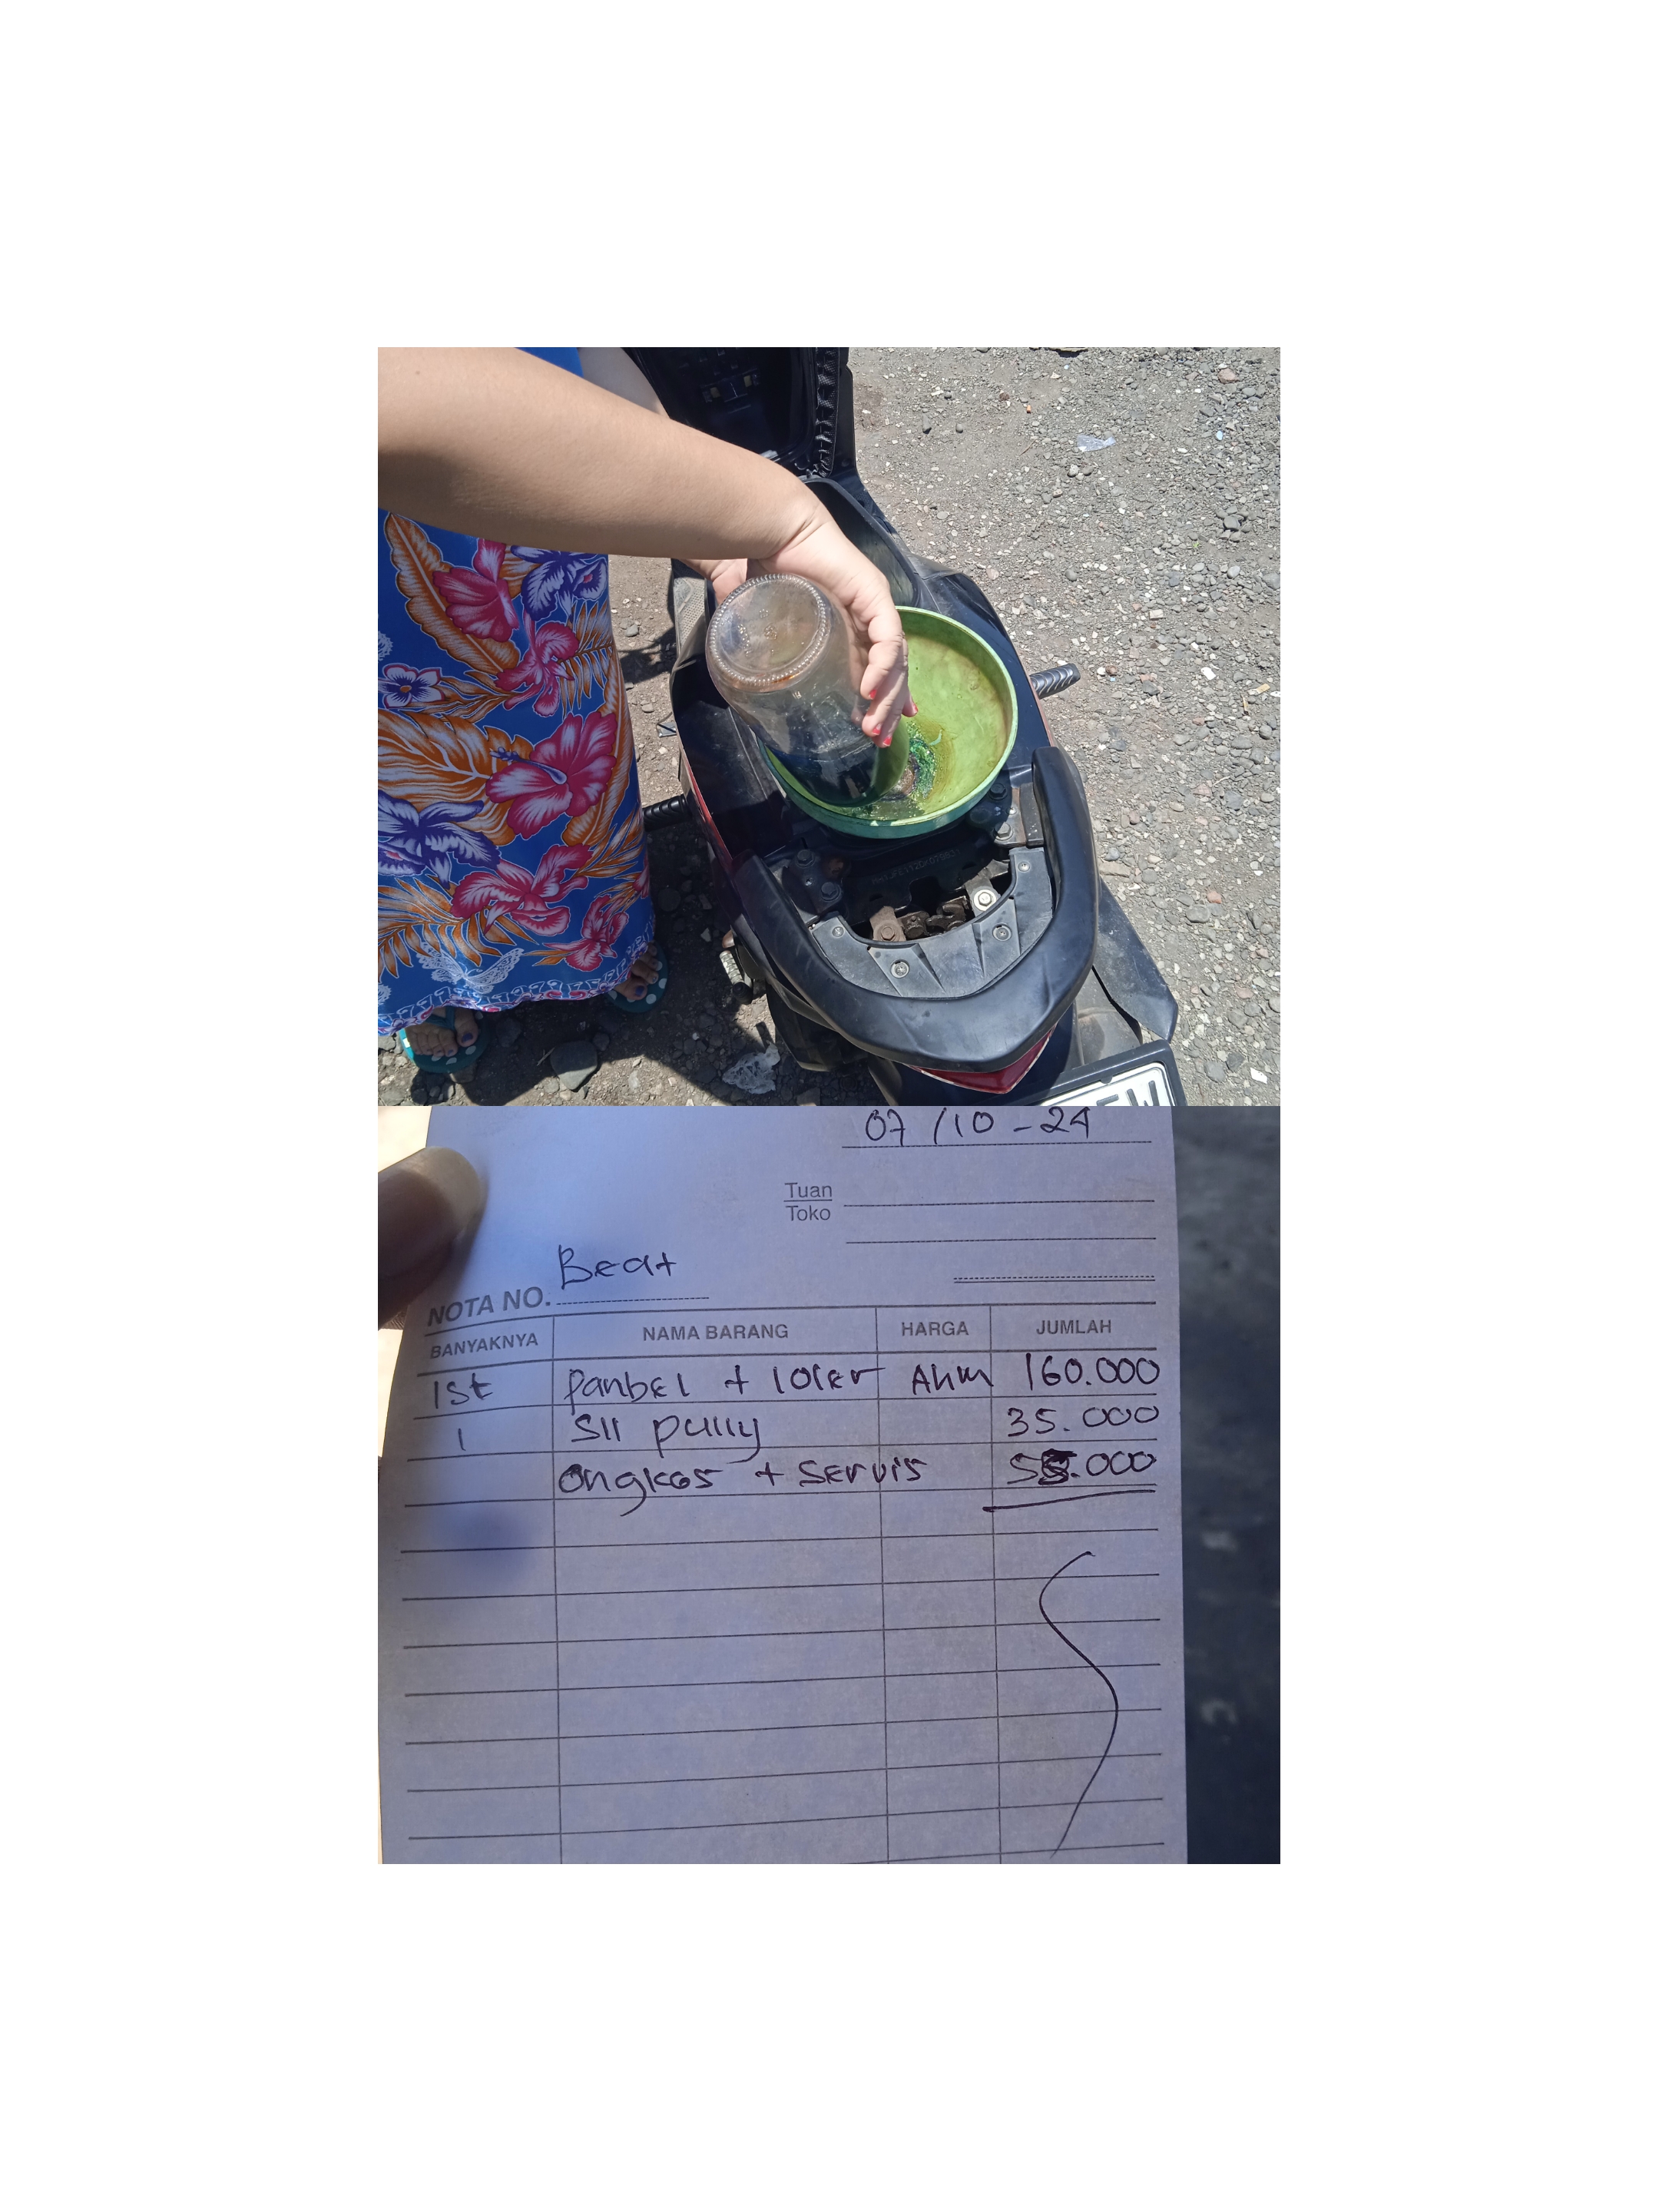 EW
07/10-24
Tuan
Toko
NOTA NO. Beat
BANYAKNYA NAMA BARANG HARGA JUMLAH
1st panbel + loler Ahm 160.000
1 Sil pully 35.000
Ongkos + servis 55.000